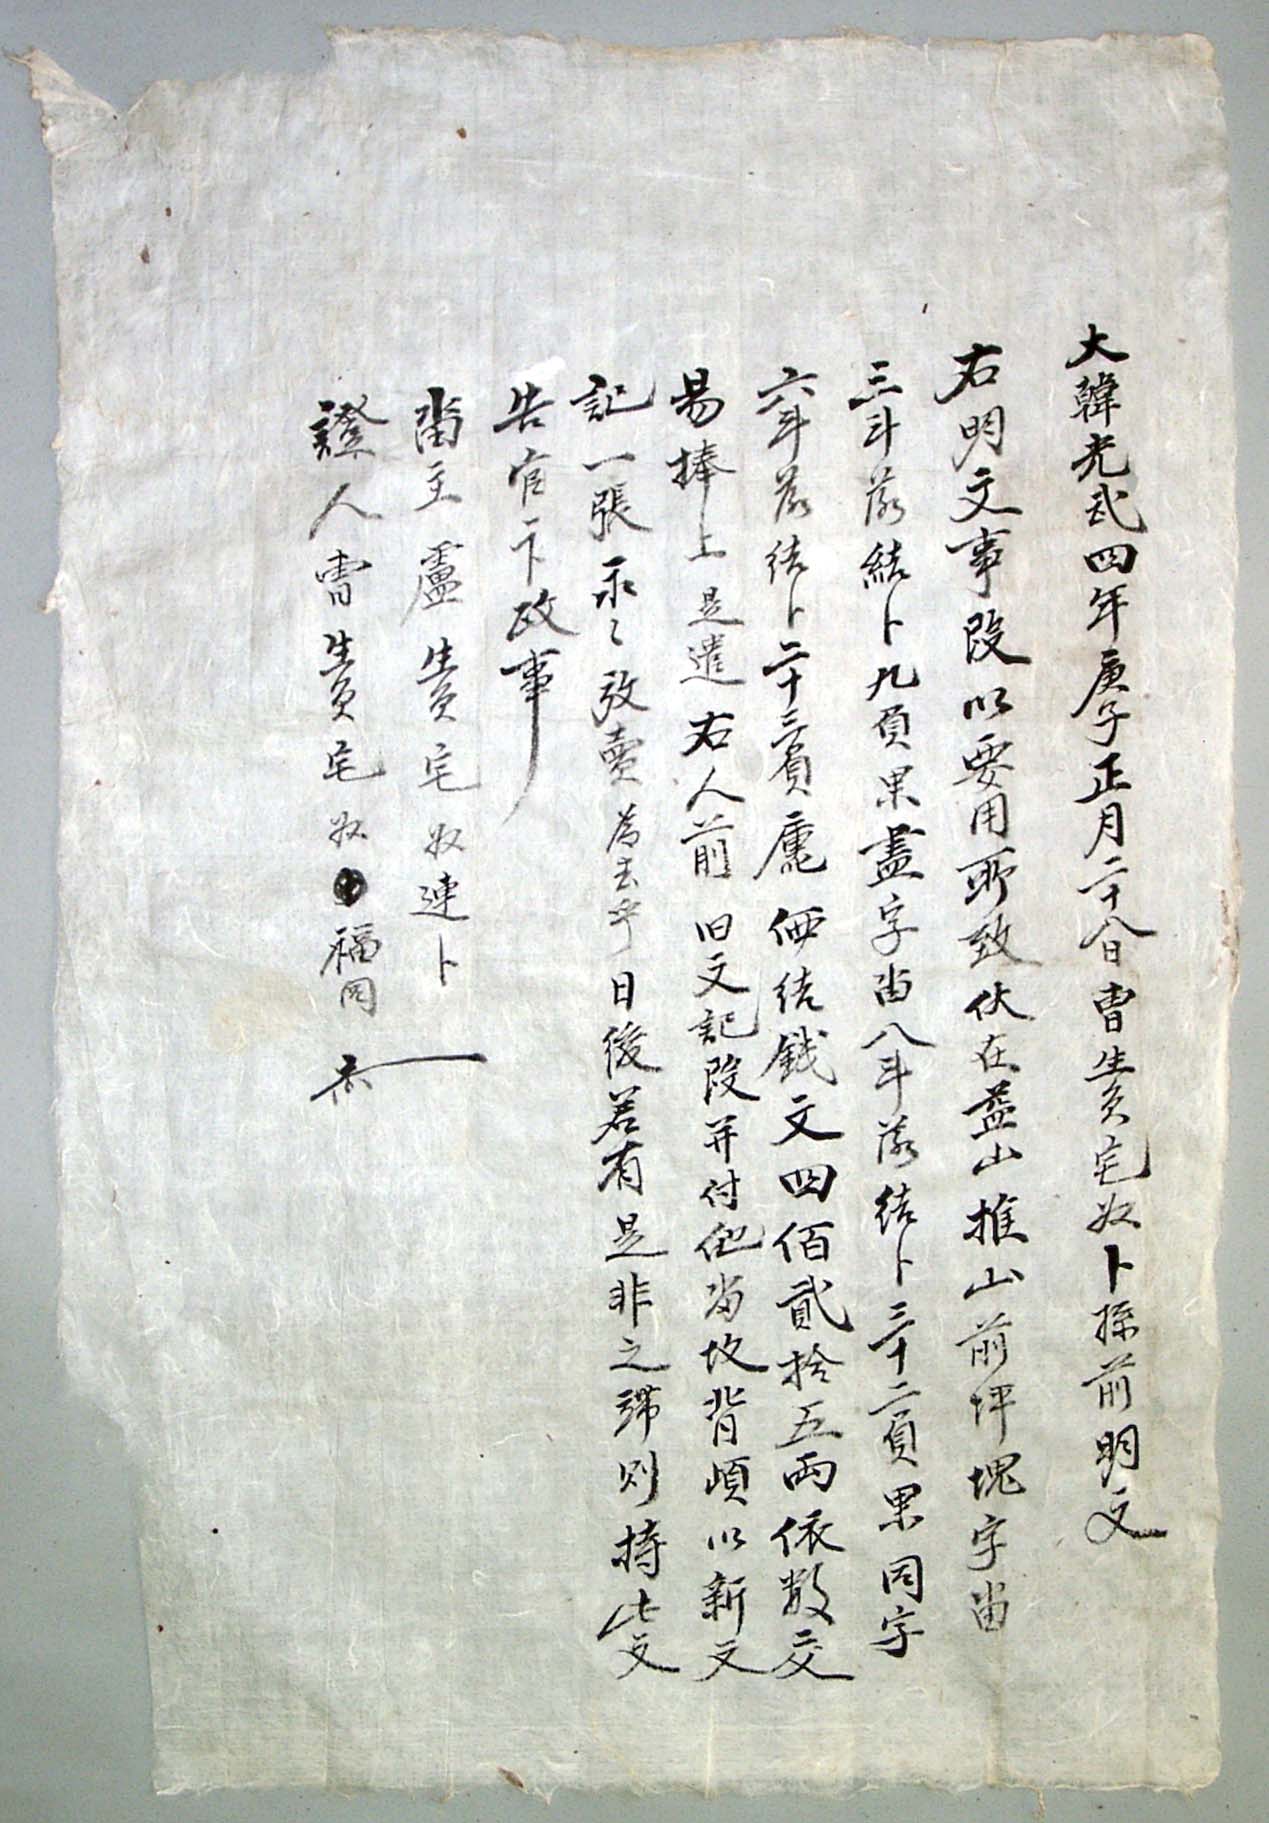 大韓光武四年庚子正月二十八日曺生員宅奴卜孫前明文
右明文事段以要用所致伏在益山推山前坪塊字畓
三斗落結卜九負果盡字畓八斗落結卜三十二負果同字
六斗落結卜二十三負庫価結錢文四佰貳拾五兩依數交
易捧上是遣右人前旧文記段并付他畓故背頉以新文
記一張永〻放賣爲去乎日後若有是非之弊則持此文
告官卞政事
畓主盧生員宅奴連卜
證人曺生員宅奴福同